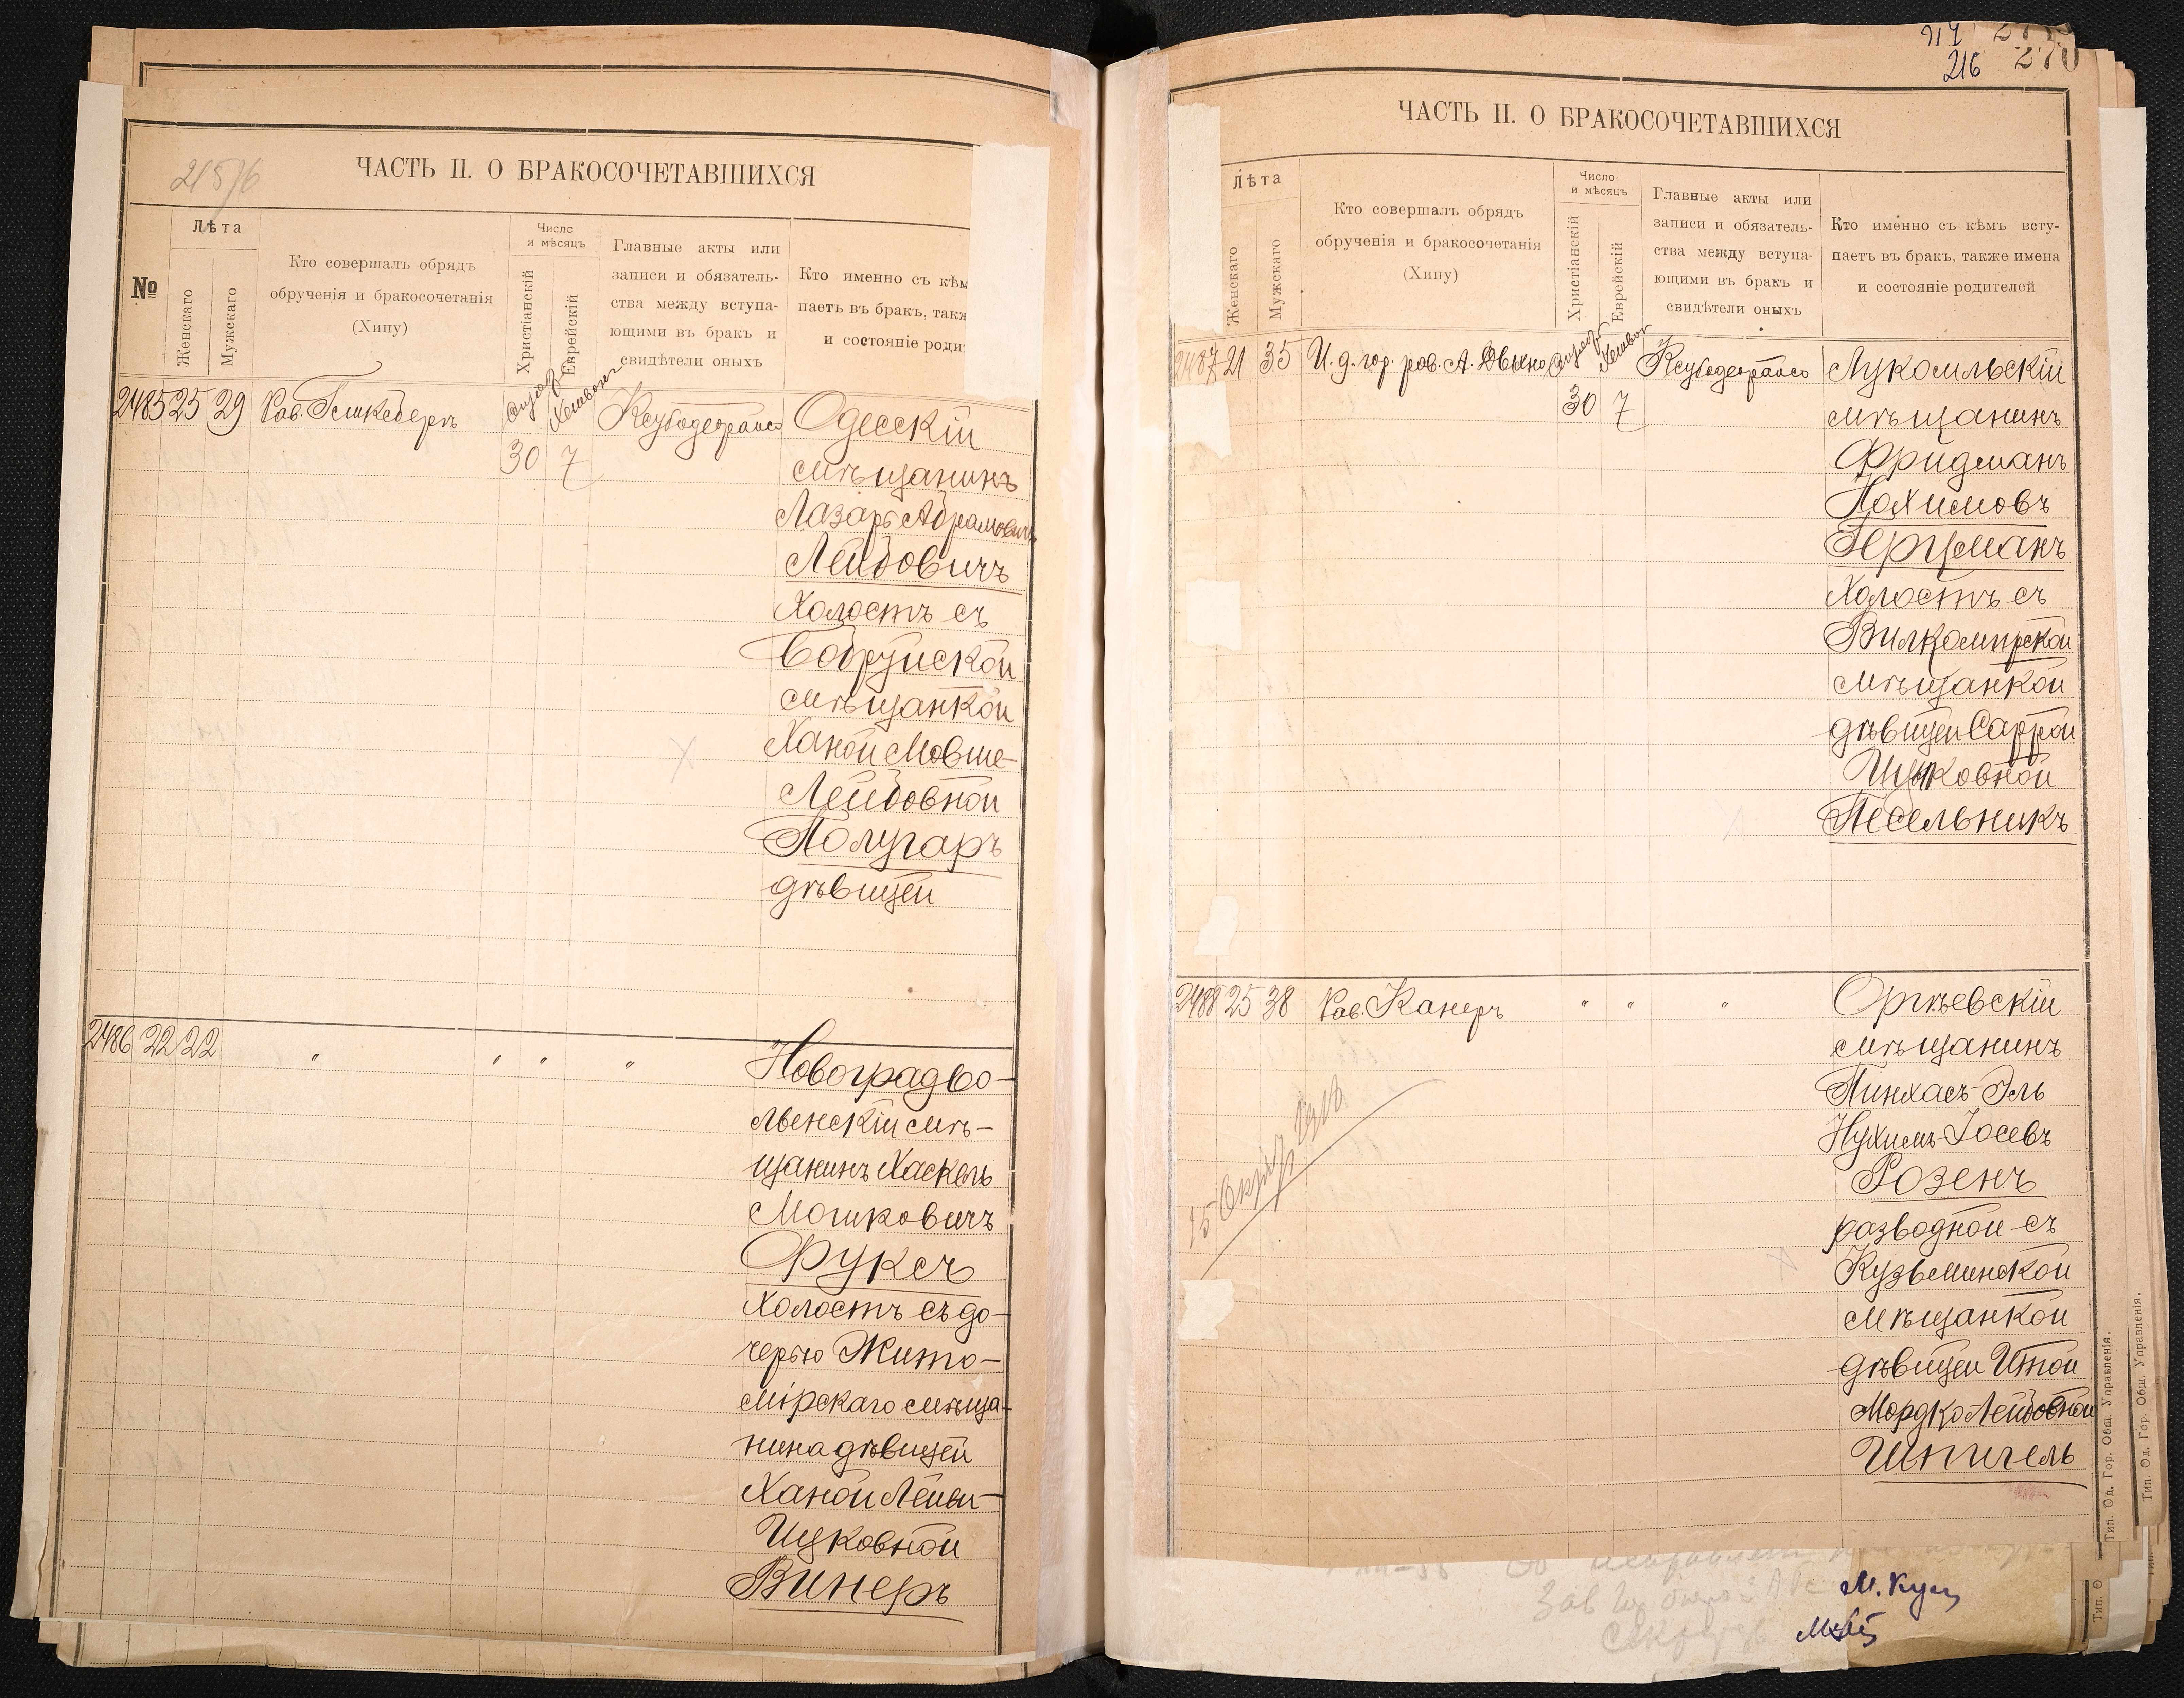 215/6
ЧАСТЬ II. О БРАКОСОЧЕТАВШИХСЯ
№
Лѣта
Женскаго
Мужскаго
Кто совершалъ обрядъ
обрученія и бракосочетанія
(Хипу)
Число
и мѣсяцъ
Христіанскій
Еврейскій
Главные акты или
записи и обязатель-
ства между вступа-
ющими въ бракъ и
свидѣтели оныхъ
Кто именно съ кѣм
паетъ въ бракъ, такж
и состояніе роди
2485 25 29 Рав.
30 7
Одесскій
мѣщанинъ
Лазарь Абрамовичъ
Лейбовичъ
холостъ съ
Бобруйской
мѣщанкой
Ханой Мовше-
Лейбовной
Полугаръ
дѣвицей
2486 22 22 " " " "
Новоградво-
лынскій мѣ-
щанинъ Хаскель
Мошковичъ
Фуксъ
холостъ съ до-
черью Жито-
мірскаго мѣща-
нина дѣвицей
Ханой Лейи-
Ицковной
Винеръ
214
216 270
ЧАСТЬ II. О БРАКОСОЧЕТАВШИХСЯ
Лѣта
Женскаго
Мужскаго
Кто совершалъ обрядъ
обрученія и бракосочетанія
(Хипу)
Число
и мѣсяцъ
Христіанскій
Еврейскій
Главные акты или
записи и обязатель-
ства между вступа-
ющими въ бракъ и
свидѣтели оныхъ
Кто именно съ кѣмъ всту-
паетъ въ бракъ, также имена
и состояніе родителей
2487 21 35 И. д. гор. рав. А.
30 7
Лукомльскій
мѣщанинъ
Фридманъ
Нахимовъ
Герцманъ
холостъ съ
Вилкомирской
мѣщанкой
дѣвицей Саррой
Ицковной
Песельникъ
2488 25 38 Рав. Канеръ " " "
Оргѣевскій
мѣщанинъ
Пинхасъ-Эль
Нухимъ-Іосевъ
Розенъ
разводной съ
Кузьминской
мѣщанкой
дѣвицей Итой
Мордко Лейбовной
Шпигель
Тип. Од. Гор. Общ. Управленія.
Тип. Од. Гор. Общ. Управленія.